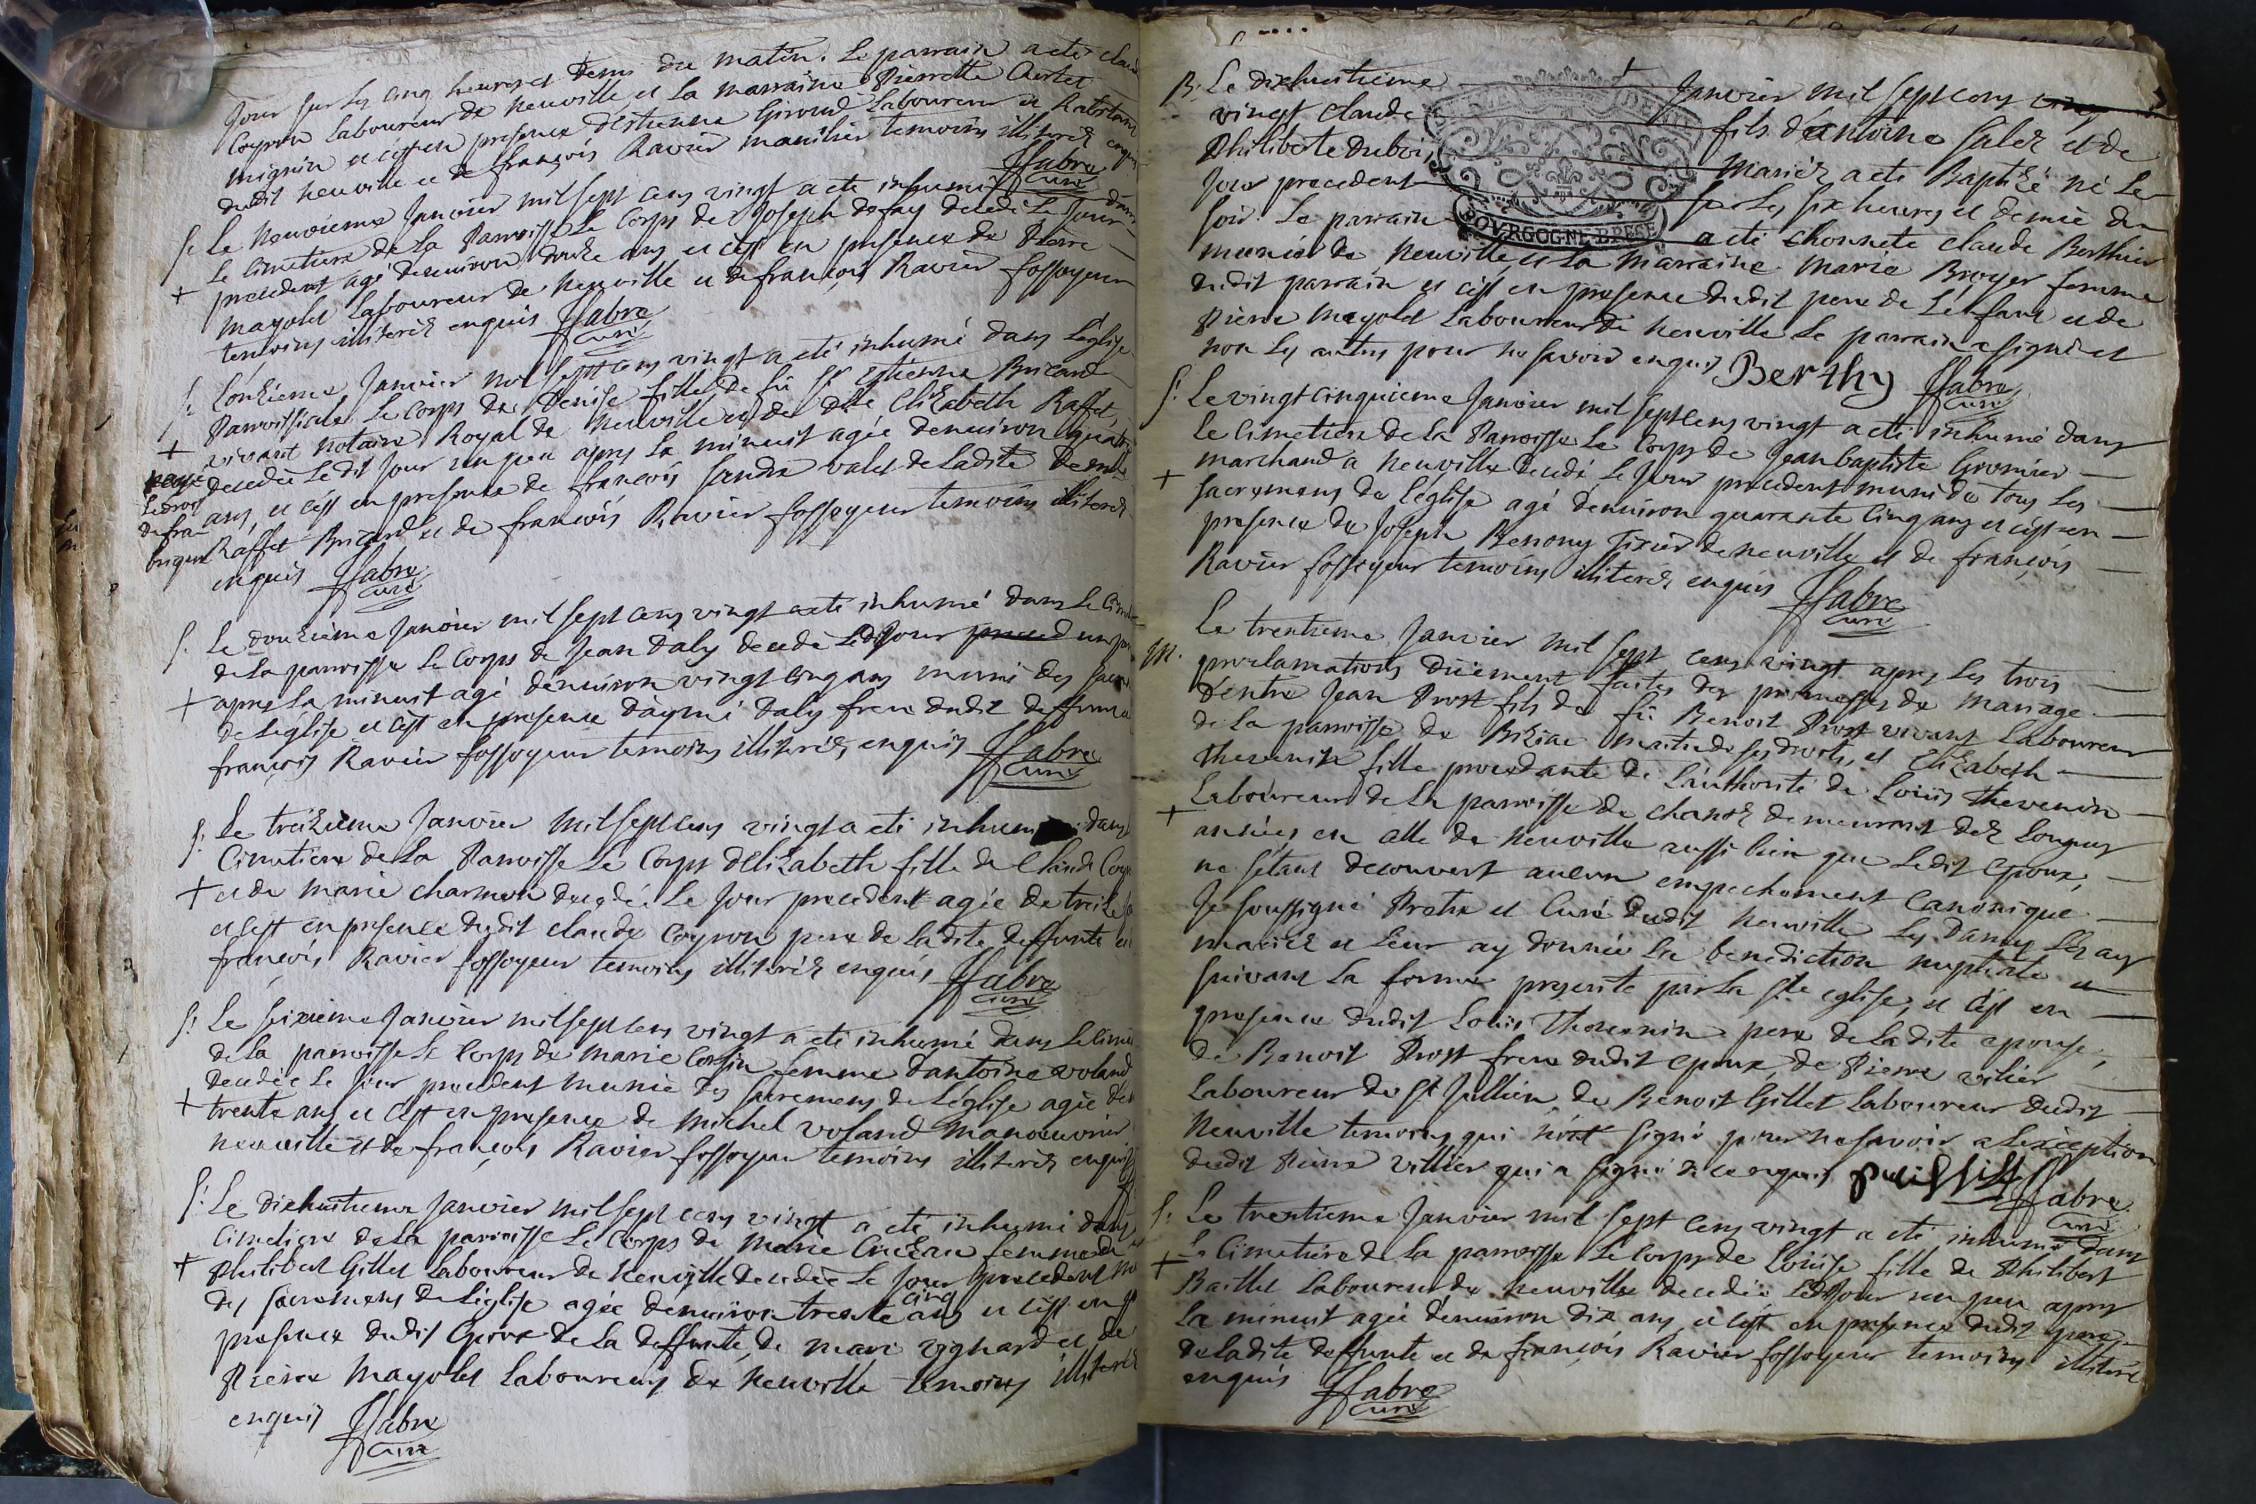 Jour sur les cinq heures et demy du matin. Le parrain a eté claude
Coyron Laboureur de Neuville, et la marraine Pierrette
mignin et c'est en presence d'estienne Giroud Laboureur et habitant
dudit Neuville et de françois Ravier manilier temoins illiterez enquis
ffabre
Curé
S. Le neuvieme Janvier mil sept cens vingt a eté inhumé dans
le cimetiere de la Parroisse le Corps de Joseph defay decedé le Jour
+ precedent agé denuiron douze ans et c'est en presence de Pierre
mayolet Laboureur de Neuville et de françois Ravier fossoyeur
temoins illiterez enquis ffabre
Curé
S. L'onzieme Janvier mil sept cens vingt a eté inhumé dans l'église
Parroissiale le Corps de Denise fille de fû Sr Estienne Brizard
+ vivant notaire Royal de Neuville et de Dlle Elizabeth Raffet,
decedée le dit Jour un peu apres la minuit agée denuiron quatre
ans, et c'est en presence de françois valet de ladite Demlle
Raffet Brizard et de françois Ravier fossoyeur temoins illiterez
enquis ffabre
Curé
S. Le douzieme Janvier mil sept cens vingt a eté inhumé dans le
de la parroisse le Corps de Jean Daly decedé ledit Jour un peu
+ apres la minuit agé denuiron vingt cinq ans muni des
de l'église et c'est en presence d'aymé Daly frere dudit deffunct
françois Ravier fossoyeur temoins illiterez enquis ffabre
Curé
S. Le treizieme Janvier mil sept cens vingt a eté inhumé dans
Cimetiere de la Parroisse le Corps d'Elizabeth fille de Claude
+ et de marie charmon decedée le Jour precedent agée de treize
et c'est en presence dudit claude Coyron pere de ladite deffunte
françois Ravier fossoyeur temoins illiterez enquis ffabre
Curé
S. Le seizieme Janvier mil sept cens vingt a eté inhumé dans le
de la parroisse le Corps de marie Corsin femme d'antoine voland
decedée le Jour precedent munie des sacremens de l'église agée
+ trente ans et c'est en presence de michel voland manoeuvrier
neuville et de françois Ravier fossoyeur temoins illiterez enquis
S. Le dixhuitieme Janvier mil sept cens vingt a eté inhumé dans
Cimetiere de la parroisse le Corps de marie femme de
+ Philibert Gillet Laboureur de Neuville decedée le Jour precedent
des sacremens de l'église agée denuiron trente cinq ans et c'est en
presence dudit Epoux de la deffunte, de marc vignard et de
Pierre mayolet Laboureurs de Neuville temoins illiterez
enquis ffabre
Curé
B. Le dixhuitieme Janvier mil sept cens
vingt claude fils d'antoine Salez et de
Philiberte Dubois mariez a eté Baptizé né le
Jour precedent sur les six heures et demie du
soir. Le parrain a eté honnete claude Berthier
munier de Neuville, et la marraine marie Broyer femme
dudit parrain et c'est en presence dudit pere de l'enfant et de
Pierre mayolet Laboureur de Neuville le parrain a signé et
non les autres pour ne savoir enquis Berthy ffabre
Curé
S. Le vingt cinquieme Janvier mil sept cens vingt a eté inhumé dans
le cimetiere de la Parroisse le Corps de Jean baptiste Gromier
marchand a Neuville decedé le Jour precedent muni de tous les
+ sacremens de l'église agé denuiron quarante cinq ans et c'est en
presence de Joseph Benony Tixier de neuville et de françois
Ravier fossoyeur temoins illiterez enquis ffabre
Curé
M. Le trentieme Janvier mil sept cens vingt apres les trois
proclamations düement faites des promesses de mariage
D'entre Jean Prost fils de fû Benoit Prost vivant Laboureur
de la parroisse de Biziac maitre de ses droits, et Elizabeth
Thevenin fille procedante de l'authorité de Loüis Thevenin
+ Laboureur de la parroisse de chanoz demeurant dez longues
années en elle de Neuville aussi bien que ledit epoux,
ne s'etant decouvert aucun empechement Canonique
Je soussigné Pretre et Curé dudit Neuville les Dames les ay
mariez et leur ay donnée la benediction nuptiale
suivant la forme prescrite par la Ste eglise, et c'est en
presence dudit Loüis Thevenin pere de ladite epouse,
de Benoit Prost frere dudit epoux, de Pierre vilier
Laboureur de St Jullien de Benoit Gillet Laboureur dudit
Neuville temoins qui n'ont signé pour ne savoir a l'exception
dudit Pierre villier qui a signé de ce enquis ffabre
Curé
S. Le trentieme Janvier mil sept cens vingt a eté inhumé dans
+ le Cimetiere de la parroisse le corps de Loüise fille de Philibert
Baillet Laboureur de Neuville decedée ledit Jour un peu apres
la minuit agée denuiron dix ans, et c'est en presence dudit pere
de ladite deffunte et de françois Ravier fossoyeur temoins illiterez
enquis ffabre
Curé
BOVRGOGNE BRESSE